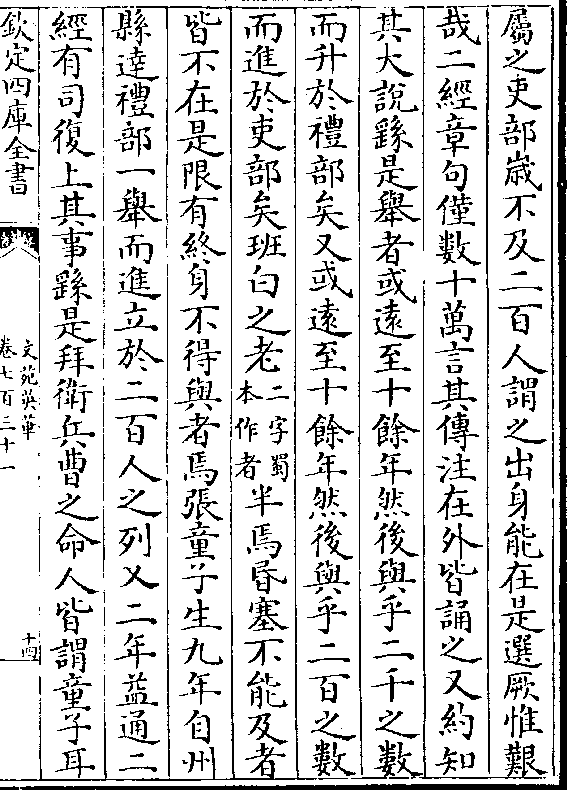 屬之吏部歲不及二百人謂之出身能在是選厥惟艱
哉二經章句僅數十萬言其傳注在外皆誦之又約知
其大說繇是舉者或逺至十餘年然後與乎二千之數
而升於禮部矣又或逺至十餘年然後與乎二百之數
而進於吏部矣班白之老二字蜀本作者半焉昬塞不能及者
皆不在是限有終身不得與者焉張童子生九年自州
縣達禮部一舉而進立於二百人之列又二年益通二
經有司復上其事繇是拜衛兵曹之命人皆謂童子耳
欽定四庫全書
文苑英華
卷七百三十一
十四